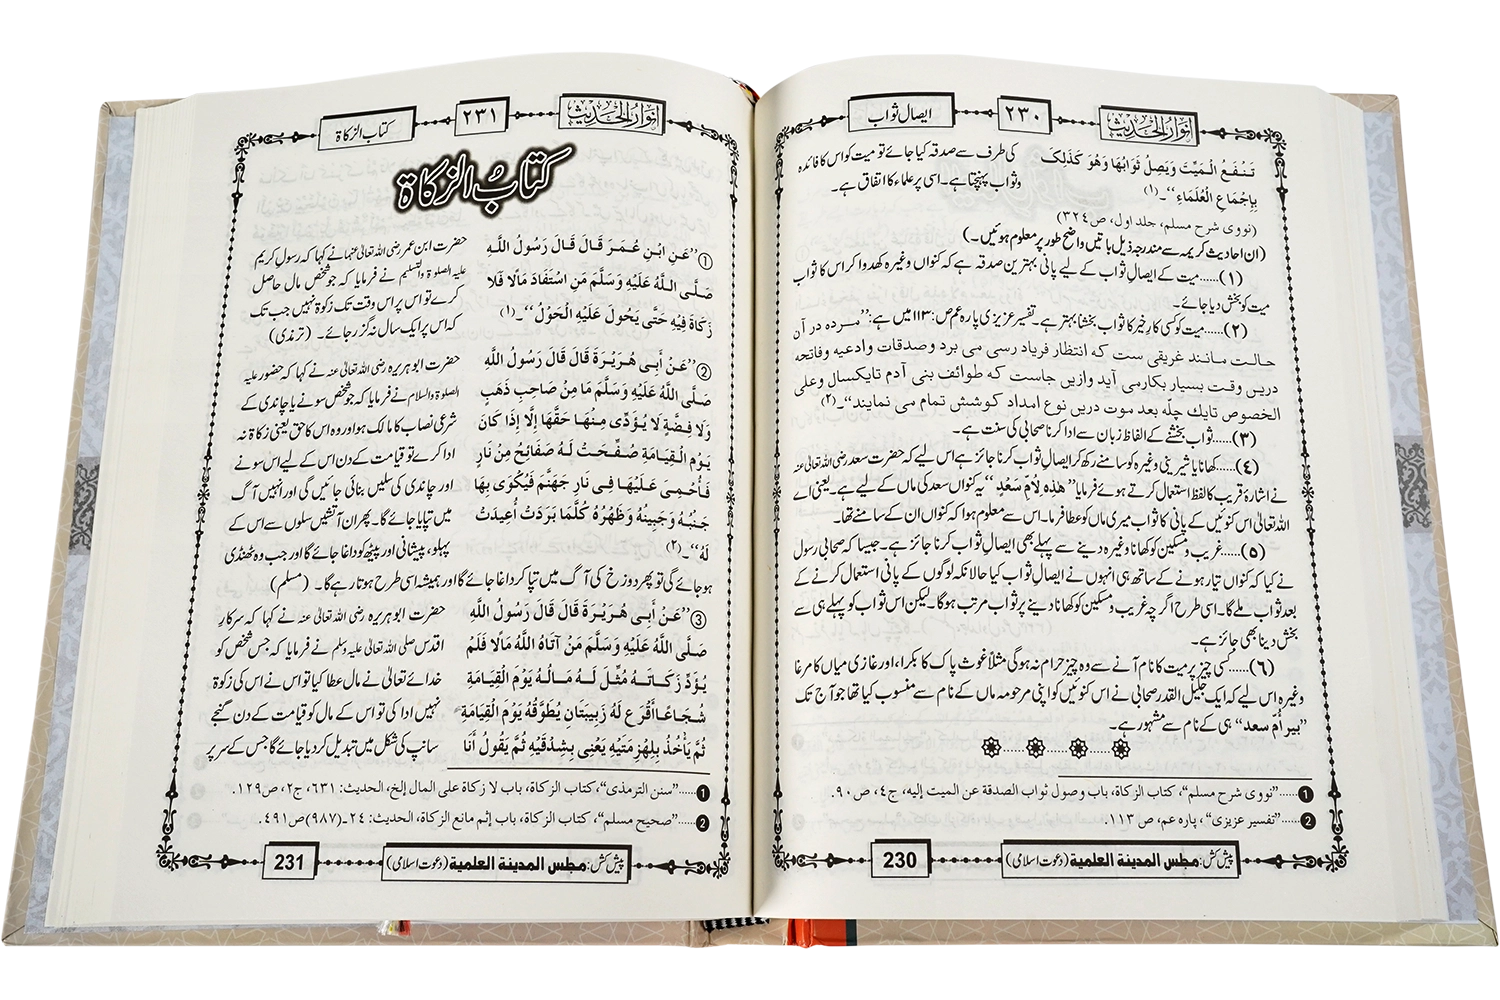 انوار الحدیث
٢٣٠
ایصال ثواب
تَنْفَعُ الْمَيِّتَ وَيَصِلُ ثَوَابُهَا وَهُوَ كَذَلِكَ
بِإِجْمَاعِ الْعُلَمَاءِ‘‘۔(۱)
کی طرف سے صدقہ کیا جائے تو میت کو اس کا فائدہ
و ثواب پہنچتا ہے۔ اسی پر علماء کا اتفاق ہے۔
(نووی شرح مسلم، جلد اول، ص٣٢٤)
(ان احادیث کریمہ سے مندرجہ ذیل باتیں واضح طور پر معلوم ہوئیں۔)
(۱)......میت کے ایصالِ ثواب کے لیے پانی بہترین صدقہ ہے کہ کنواں وغیرہ کھدوا کر اس کا ثواب
میت کو بخش دیا جائے۔
(۲)......میت کو کسی کارِ خیر کا ثواب بخشنا بہتر ہے۔ تفسیر عزیزی پارہ عم ص:۱۱۳ میں ہے: ’’مرده در آن
حالت مانند غریقی ست که انتظار فریاد رسی می برد وصدقات وادعیه وفاتحه
دریں وقت بسیار بکارمی آید وازیں جاست که طوائف بنی آدم تایکسال وعلی
الخصوص تایك چلّه بعد موت دریں نوع امداد کوشش تمام می نمایند‘‘۔(۲)
(۳)......ثواب بخشنے کے الفاظ زبان سے ادا کرنا صحابی کی سنت ہے۔
(۴)......کھانا یا شیرینی وغیرہ کو سامنے رکھ کر ایصالِ ثواب کرنا جائز ہے اس لیے کہ حضرت سعد رضی اللہ تعالیٰ عنہ
نے اشارۂ قریب کا لفظ استعمال کرتے ہوئے فرمایا ’’هٰذِهِ لِأُمِّ سَعْدٍ‘‘ یہ کنواں سعد کی ماں کے لیے ہے۔ یعنی اے
اللہ تعالیٰ اس کنوئیں کے پانی کا ثواب میری ماں کو عطا فرما۔ اس سے معلوم ہوا کہ کنواں ان کے سامنے تھا۔
(۵)......غریب و مسکین کو کھانا وغیرہ دینے سے پہلے بھی ایصالِ ثواب کرنا جائز ہے۔ جیسا کہ صحابی رسول
نے کیا کہ کنواں تیار ہونے کے ساتھ ہی انہوں نے ایصالِ ثواب کیا حالانکہ لوگوں کے پانی استعمال کرنے کے
بعد ثواب ملے گا۔ اسی طرح اگرچہ غریب و مسکین کو کھانا دینے پر ثواب مرتب ہوگا۔ لیکن اس ثواب کو پہلے ہی سے
بخش دینا بھی جائز ہے۔
(۶)......کسی چیز پر میت کا نام آنے سے وہ چیز حرام نہ ہوگی مثلاً غوث پاک کا بکرا، اور غازی میاں کا مرغا
وغیرہ اس لیے کہ ایک جلیل القدر صحابی نے اس کنوئیں کو اپنی مرحومہ ماں کے نام سے منسوب کیا تھا جو آج تک
’’بیر اُمّ سعد‘‘ ہی کے نام سے مشہور ہے۔
1......’’نووی شرح مسلم‘‘، کتاب الزکاۃ، باب وصول ثواب الصدقة عن المیت إلیه، ج٤، ص ٩٠.
2......’’تفسیر عزیزی‘‘، پاره عم، ص ١١٣.
پیش کش: مجلس المدينة العلمية (دعوت اسلامی)
230
انوار الحدیث
٢٣١
کتاب الزکاة
کتابُ الزکاة
①’’عَنِ ابْنِ عُمَرَ قَالَ قَالَ رَسُولُ اللَّهِ
صَلَّى اللهُ عَلَيْهِ وَسَلَّمَ مَنِ اسْتَفَادَ مَالًا فَلَا
زَكَاةَ فِيْهِ حَتَّى يَحُولَ عَلَيْهِ الْحَوْلُ‘‘۔(۱)
حضرت ابن عمر رضی اللہ تعالیٰ عنہما نے کہا کہ رسولِ کریم
علیہ الصلوۃ والتسلیم نے فرمایا کہ جو شخص مال حاصل
کرے تو اس پر اس وقت تک زکوۃ نہیں جب تک
کہ اس پر ایک سال نہ گزر جائے۔ (ترمذی)
②’’عَنْ أَبِي هُرَيْرَةَ قَالَ قَالَ رَسُولُ اللَّهِ
صَلَّى اللَّهُ عَلَيْهِ وَسَلَّمَ مَا مِنْ صَاحِبِ ذَهَبٍ
وَلَا فِضَّةٍ لَا يُؤَدِّى مِنْهَا حَقَّهَا إِلَّا إِذَا كَانَ
يَوْمُ الْقِيَامَةِ صُفِّحَتْ لَهُ صَفَائِحُ مِنْ نَارٍ
فَأُحْمِيَ عَلَيْهَا فِي نَارِ جَهَنَّمَ فَيُكْوَى بِهَا
جَنْبُهُ وَجَبِينُهُ وَظَهْرُهُ كُلَّمَا بَرَدَتْ أُعِيدَتْ
لَهُ‘‘۔(۲)
حضرت ابو ہریرہ رضی اللہ تعالیٰ عنہ نے کہا کہ حضور علیہ
الصلوۃ والسلام نے فرمایا کہ جو شخص سونے یا چاندی کے
شرعی نصاب کا مالک ہو اور وہ اس کا حق یعنی زکاۃ نہ
ادا کرے تو قیامت کے دن اس کے لیے اس سونے
اور چاندی کی سلیں بنائی جائیں گی اور انہیں آگ
میں تپایا جائے گا۔ پھر ان آتشیں سلوں سے اس کے
پہلو، پیشانی اور پیٹھ کو داغا جائے گا اور جب وہ ٹھنڈی
ہو جائے گی تو پھر دوزخ کی آگ میں تپا کر داغا جائے گا اور ہمیشہ اسی طرح ہوتا رہے گا۔ (مسلم)
③’’عَنْ أَبِي هُرَيْرَةَ قَالَ قَالَ رَسُولُ اللَّهِ
صَلَّى اللَّهُ عَلَيْهِ وَسَلَّمَ مَنْ آتَاهُ اللَّهُ مَالًا فَلَمْ
يُؤَدِّ زَكَاتَهُ مُثِّلَ لَهُ مَالُهُ يَوْمَ الْقِيَامَةِ
شُجَاعًا أَقْرَعَ لَهُ زَبِيبَتَانِ يُطَوَّقُهُ يَوْمَ الْقِيَامَةِ
ثُمَّ يَأْخُذُ بِلِهْزِمَتَيْهِ يَعْنِي بِشِدْقَيْهِ ثُمَّ يَقُولُ أَنَا
حضرت ابو ہریرہ رضی اللہ تعالیٰ عنہ نے کہا کہ سرکارِ
اقدس صلی اللہ تعالیٰ علیہ وسلم نے فرمایا کہ جس شخص کو
خدائے تعالیٰ نے مال عطا کیا تو اس نے اس کی زکوۃ
نہیں ادا کی تو اس کے مال کو قیامت کے دن گنجے
سانپ کی شکل میں تبدیل کر دیا جائے گا جس کے سر پر
1......’’سنن الترمذی‘‘، کتاب الزکاة، باب لا زکاة على المال إلخ، الحدیث: ٦٣١، ج٢، ص١٢٩.
2......’’صحیح مسلم‘‘، کتاب الزکاة، باب إثم مانع الزکاة، الحدیث: ٢٤ـ(٩٨٧)ص٤٩١.
پیش کش: مجلس المدينة العلمية (دعوت اسلامی)
231